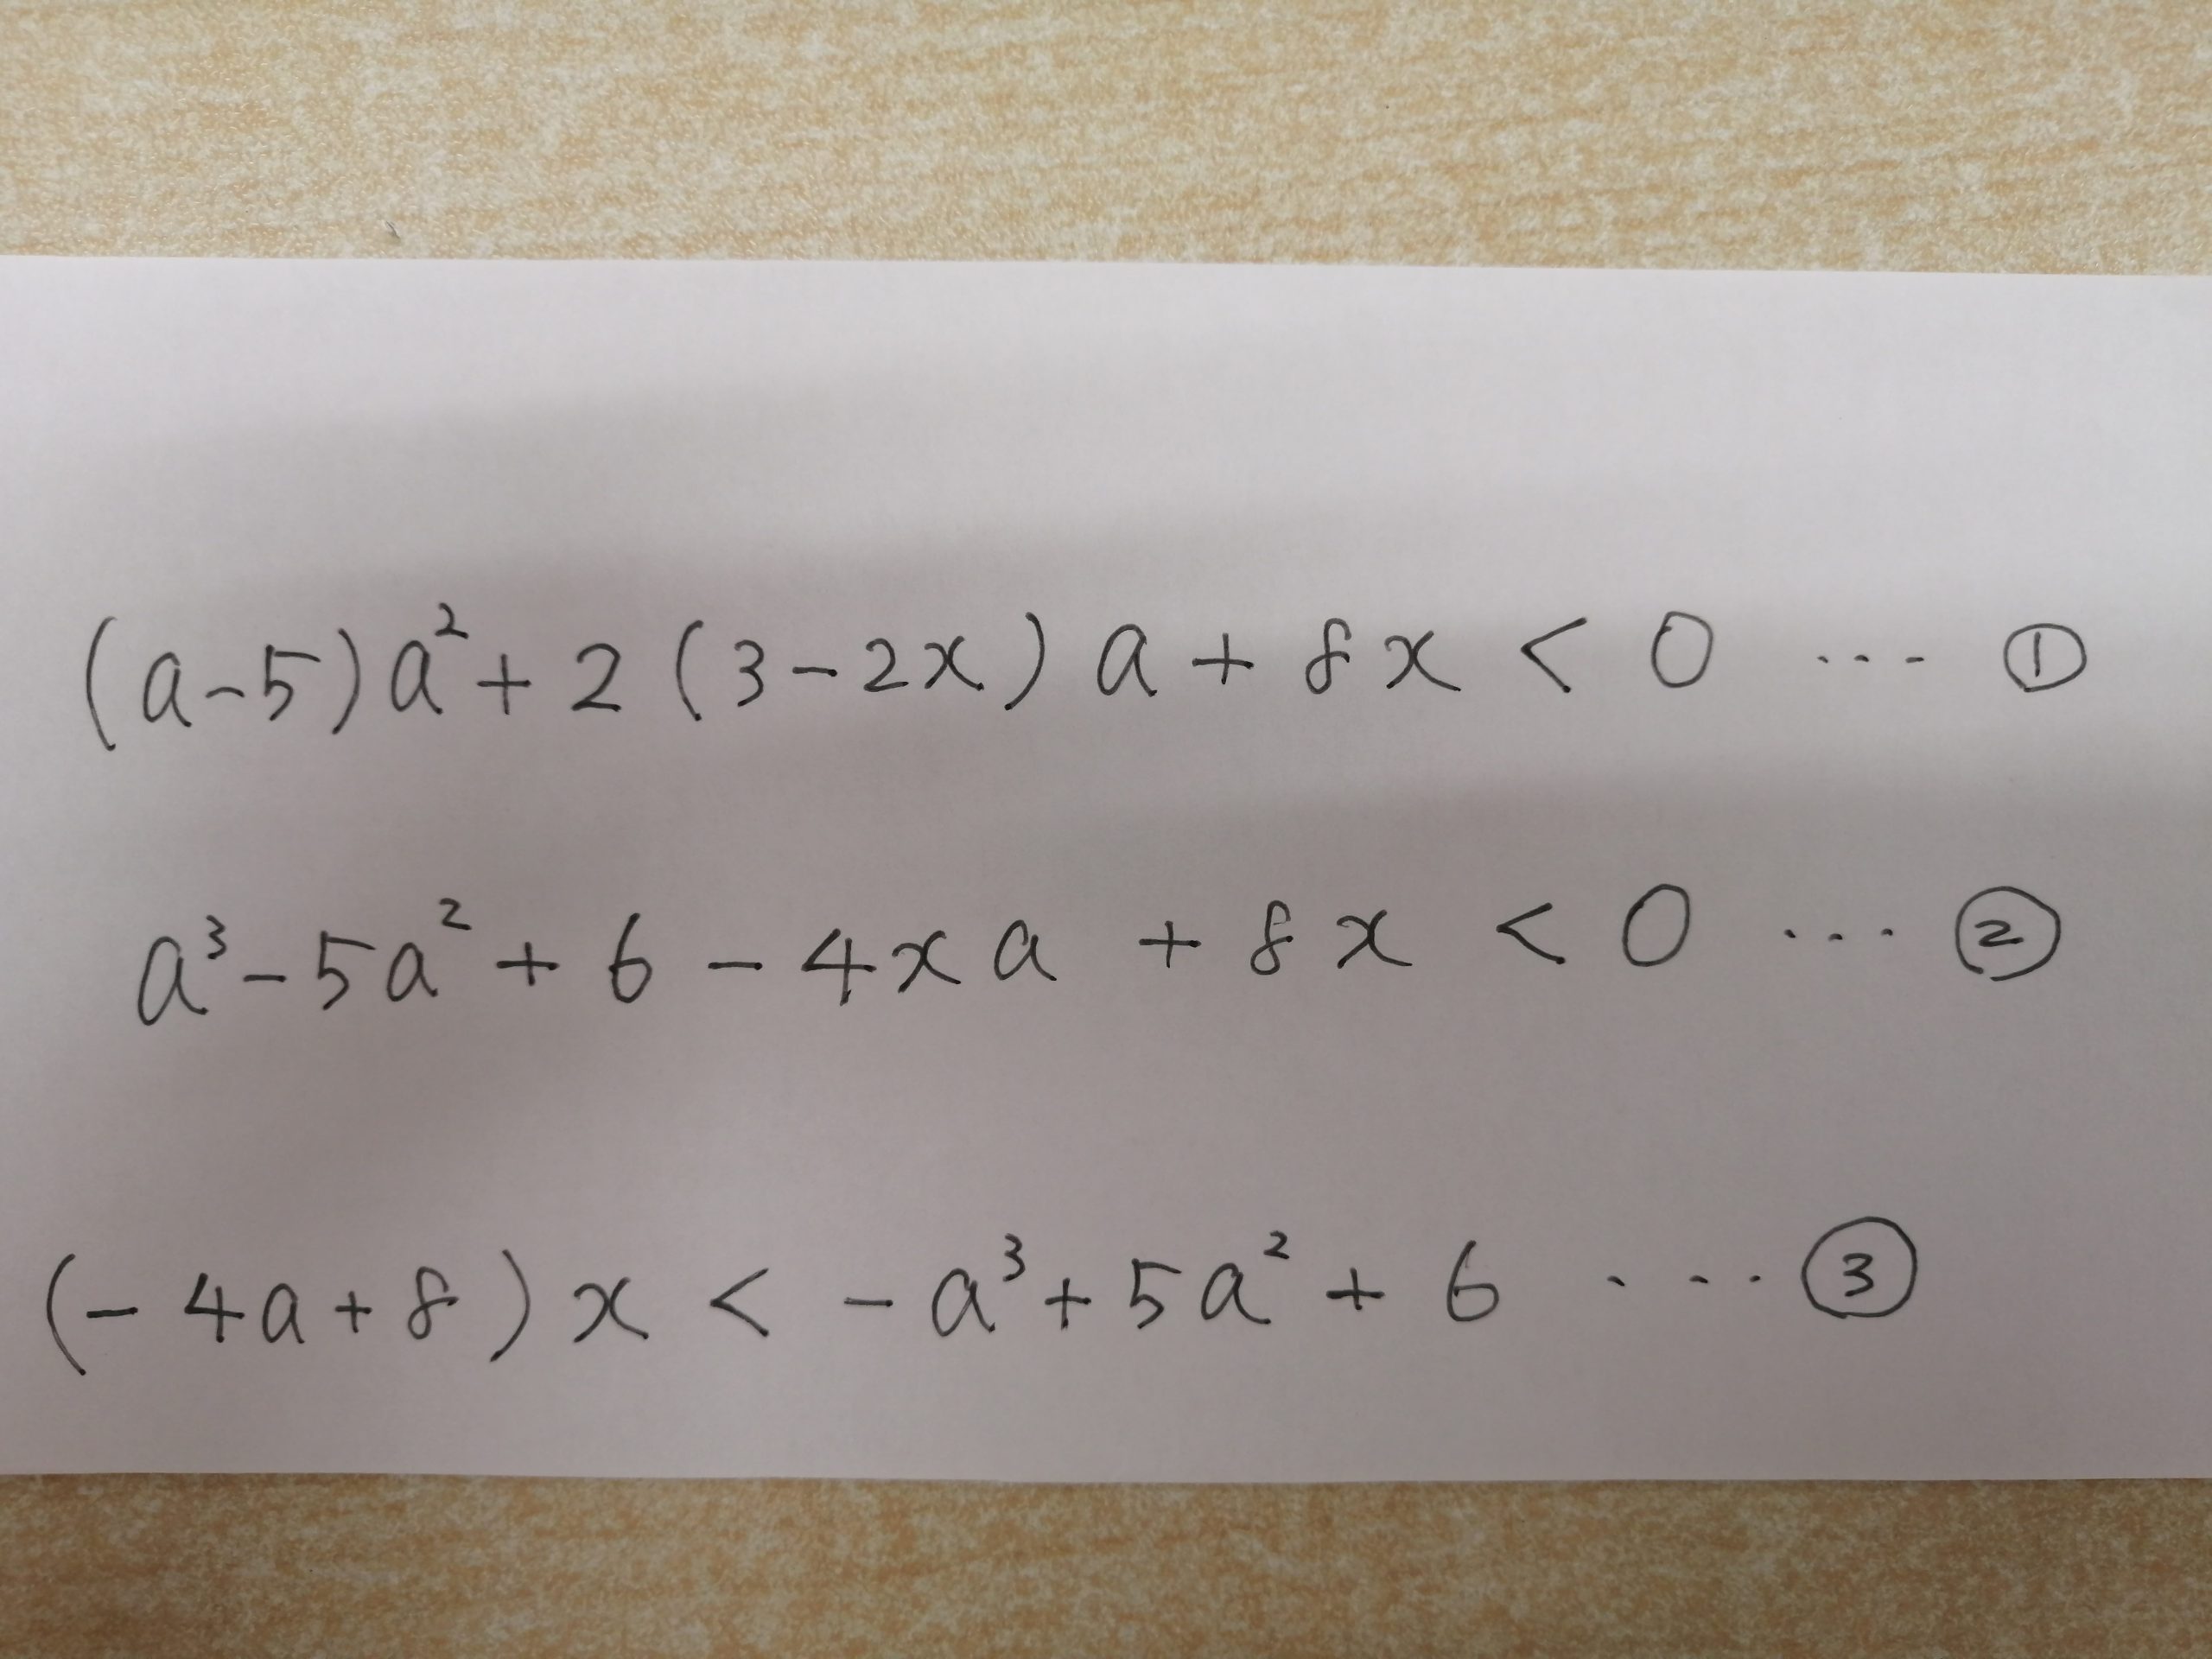 (a-5)a²+2(3-2x)a+8x<0 ... ①
a³-5a²+6-4xa+8x<0 ... ②
(-4a+8)x<-a³+5a²+6 ... ③